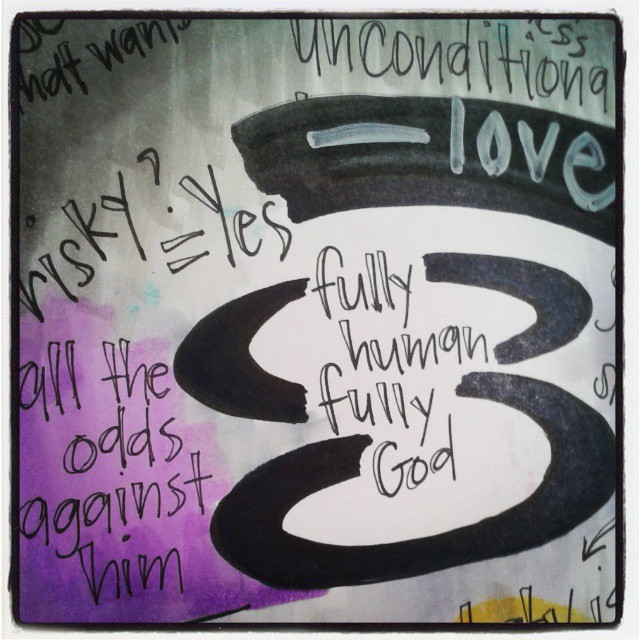 that wants
unconditiona
— love
risky? = yes
fully
human
fully
God
all the
odds
against
him